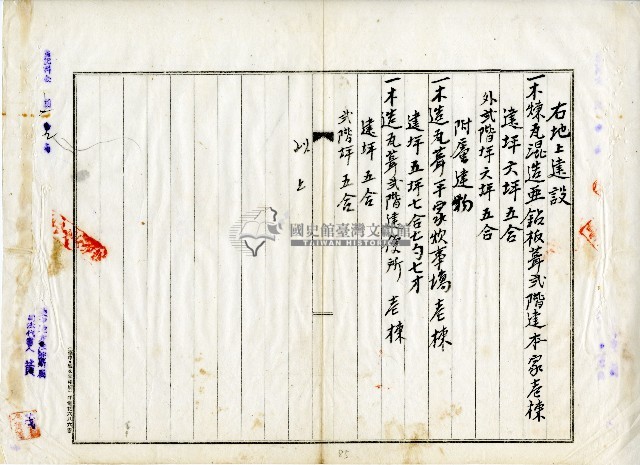 右地上建設
一木煉瓦混造亜鉛板葺弐階建本家壱棟
建坪六坪五合
外弐階坪六坪五合
附屬建物
一木造瓦葺平家炊事場壱棟
建坪五坪七合七勺七才
一木造瓦葺弐階建便所壱棟
建坪五合
弐階坪五合
以上
國史館臺灣文獻館
TAIWAN HISTORICA
85